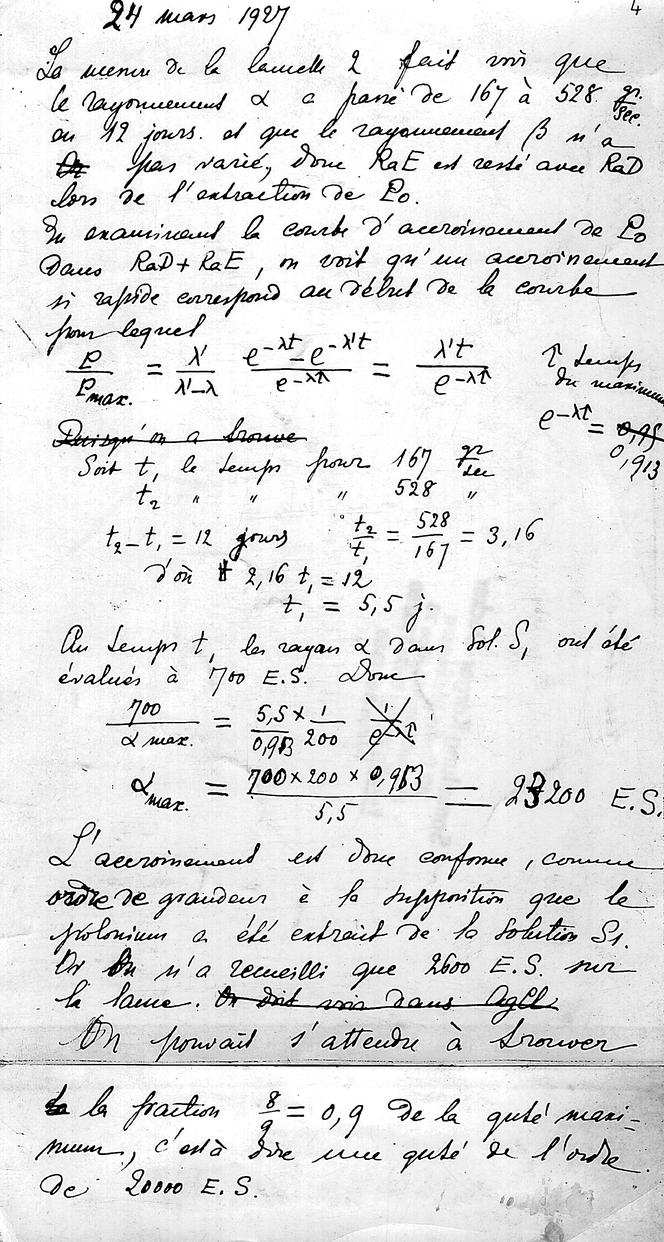 4
24 mars 1927
La mesure de la lamelle 2 fait voir que
le rayonnement α a passé de 167 à 528 gr/sec.
en 12 jours. et que le rayonnement β n'a
pas varié, donc RaE est resté avec RaD
lors de l'extraction de Po.
En examinant la courbe d'accroissement de Po
dans RaD + RaE, on voit qu'un accroissement
si rapide correspond au début de la courbe
pour lequel
P/Pmax. = λ'/(λ'-λ) (e^-λt - e^-λ't)/e^-λτ = λ't/e^-λτ
τ temps
du maximum
e^-λτ = 0,95
0,913
Puisqu'on a trouvé
Soit t, le temps pour 167 gr/sec
t₂ " " " 528 "
t₂ - t₁ = 12 jours t₂/t₁ = 528/167 = 3,16
d'où 2,16 t₁ = 12
t₁ = 5,5 j.
Au temps t, les rayons α dans Sol. S₁ ont été
évalués à 700 E.S. Donc
700/α max. = 5,5 × 1/0,913 200 1/e^-λτ
α max. = 700 × 200 × 0,913/5,5 = 23200 E.S.
L'accroissement est donc conforme, comme
ordre de grandeur à la supposition que le
polonium a été extrait de la solution S₁.
Or on n'a recueilli que 2600 E.S. sur
la lame. On doit voir dans AgCl
On pouvait s'attendre à trouver
la fraction 8/9 = 0,9 de la quté maxi-
mum, c'est à dire une quté de l'ordre
de 20000 E.S.